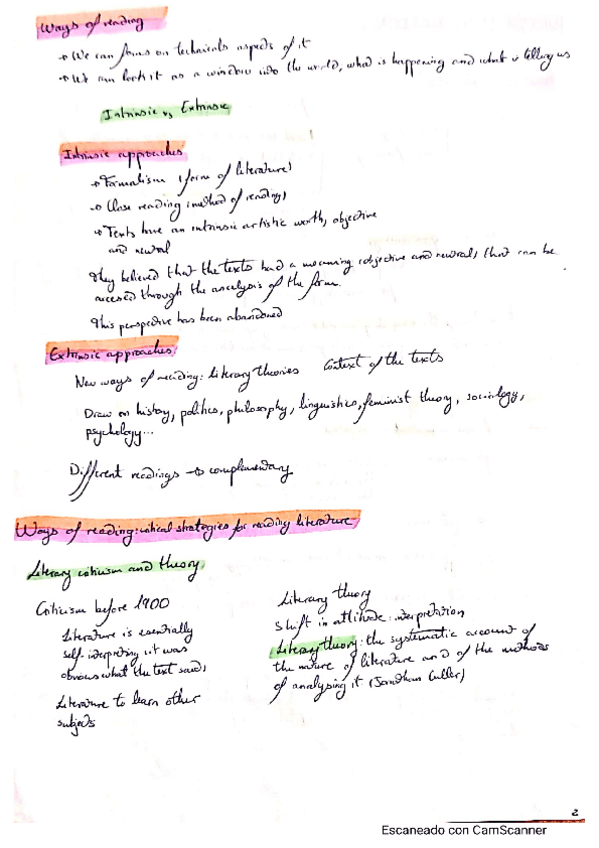 Ways of reading
→ We can focus on technicals aspects of it
→ We can look it as a window into the world, what is happening and what is telling us
Intrinsic vs Extrinsic
Intrinsic approaches
→ Formalism (form of literature)
→ Close reading (method of reading)
→ Texts have an intrinsic artistic worth, objective
and neutral
They believed that the texts had a meaning (objective and neutral) that can be
accessed through the analysis of the form.
This perspective has been abandoned
Extrinsic approaches:
New ways of reading: literary theories Context of the texts
Draw on history, politics, philosophy, linguistics, feminist theory, sociology,
psychology...
Different readings → complementary
Ways of reading: critical strategies for reading literature
Literary criticism and theory
Criticism before 1900
Literature is essentially
self-interpreting (it was
obvious what the text said)
Literature to learn other
subjects
Literary theory
Shift in attitude: interpretation
Literary theory: the systematic account of
the nature of literature and of the methods
of analysing it (Jonathan Culler)
2
Escaneado con CamScanner